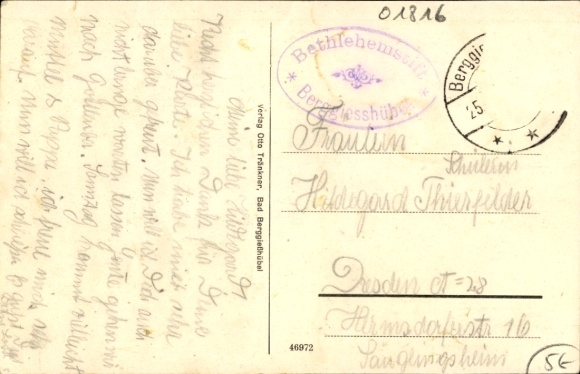 01816
Bethlehemstift
Berggiesshübel
Berggie
25
Meine liebe Hildegard!
Recht Dank für Deine
liebe Karte. Ich habe mich sehr
darüber gefreut. Nun will ich Dich auch
nicht lange warten lassen. Heute gehen wir
nach Gottleuba. Samstag kommt vielleicht
Papa. ich freue mich sehr
darauf. Nun will ich schließen. Es grüßt
Verlag Otto Tränkner, Bad Berggießhübel
46972
Fräulein
Schülerin
Hildegard Thierfelder
Dresden A=28
Hermsdorferstr 16
Säuglingsheim
5€